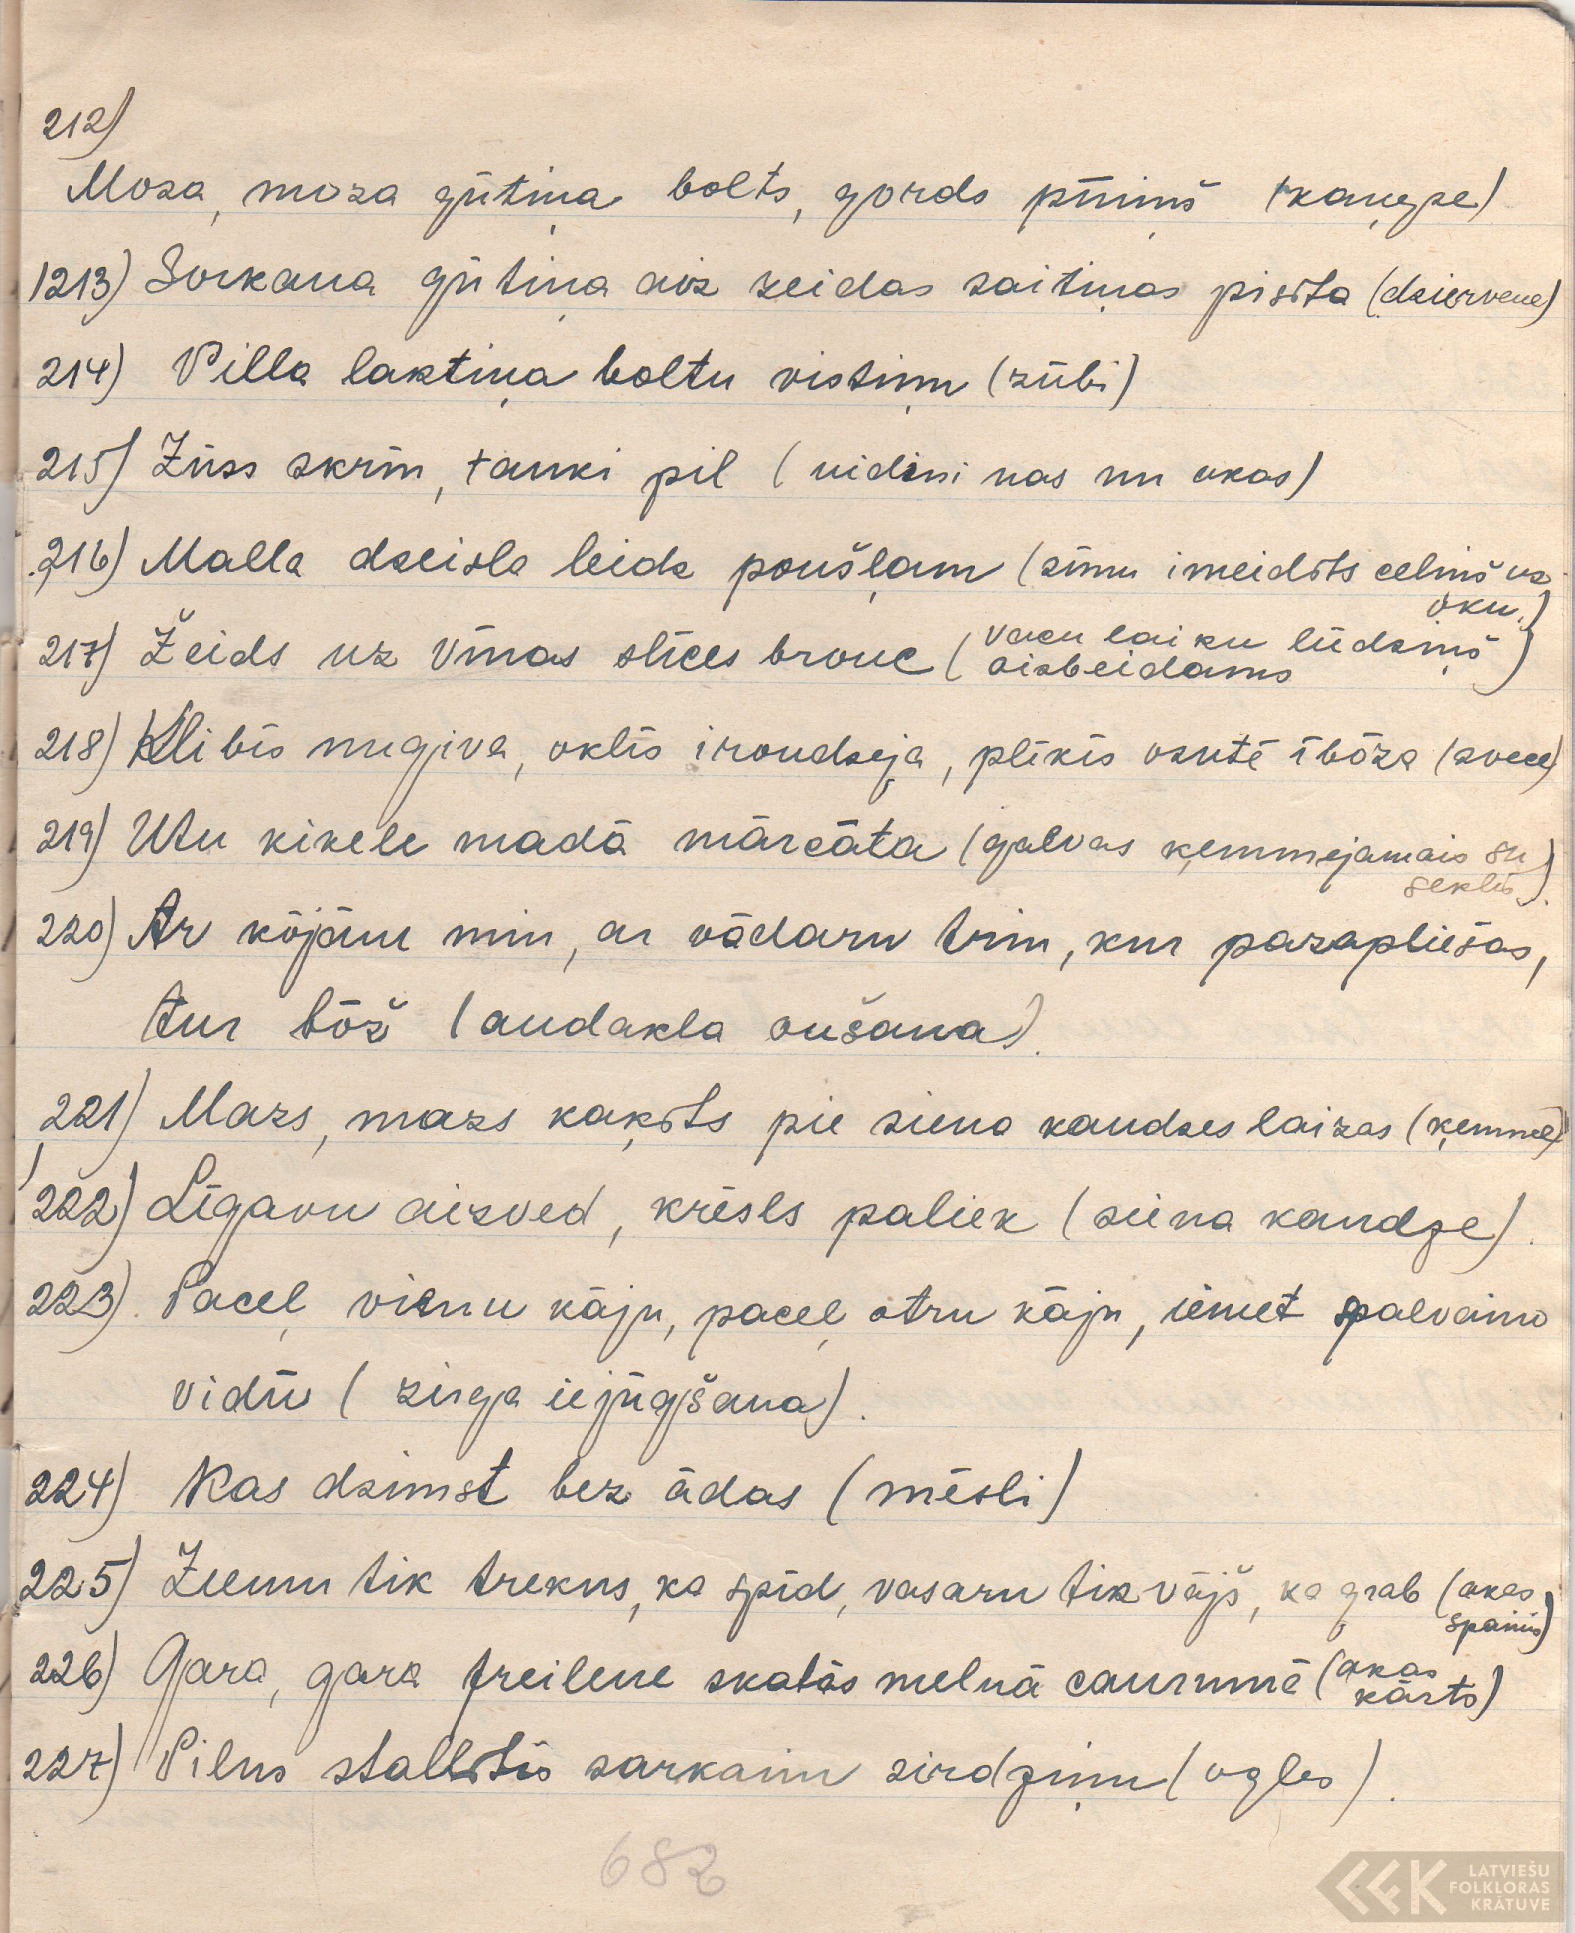 212)
Moza, moza gūtiņa bolts, gords pīniņš (kaņepe)
213) Sorkana gūtiņa aiz zeidas saitiņas pisīta (dzīervene)
214) Pilla laktiņa boltu vistiņu (zūbi)
215) Zūss skrīn, tauki pil (uidini nas nu okas)
216) Malla dzeisla leidz poušļam (zīmu imeidīts celiņš uz
oku.)
217) Žeids uz vīnas slīces brouc (vacu laiku lūdziņš
aizbeidams)
218) Klibīs nugiva, oklīs iroudzeja, plikīs ozutē ībōza (svece)
219) Utu kikele madā mārcāta (galvas ķemmējamais su
seklis).
220) Ar kōjām min, ar vādaru trin, kur pazapliešas,
tur bōž (audakla oušana).
221) Mazs, mazs kaķīts pie siena kaudzes laizas (ķemme)
222) Līgavu aizved, krēsls paliek (siena kaudze).
223) Paceļ vienu kāju, paceļ otru kāju, iemet spalvaino
vidū (zirga iejūgšana).
224) Kas dzimst bez ādas (mēsli)
225) Ziemu tik trekns, ka spīd, vasaru tik vājš, ka grab (akas
spainis)
226) Gara, gara freilene skatās melnā caurumā (akas
kārts)
227) Pilns stallītis sarkaniu sirdziņu (ogles).
682
LATVIEŠU
FOLKLORAS
KRĀTUVE